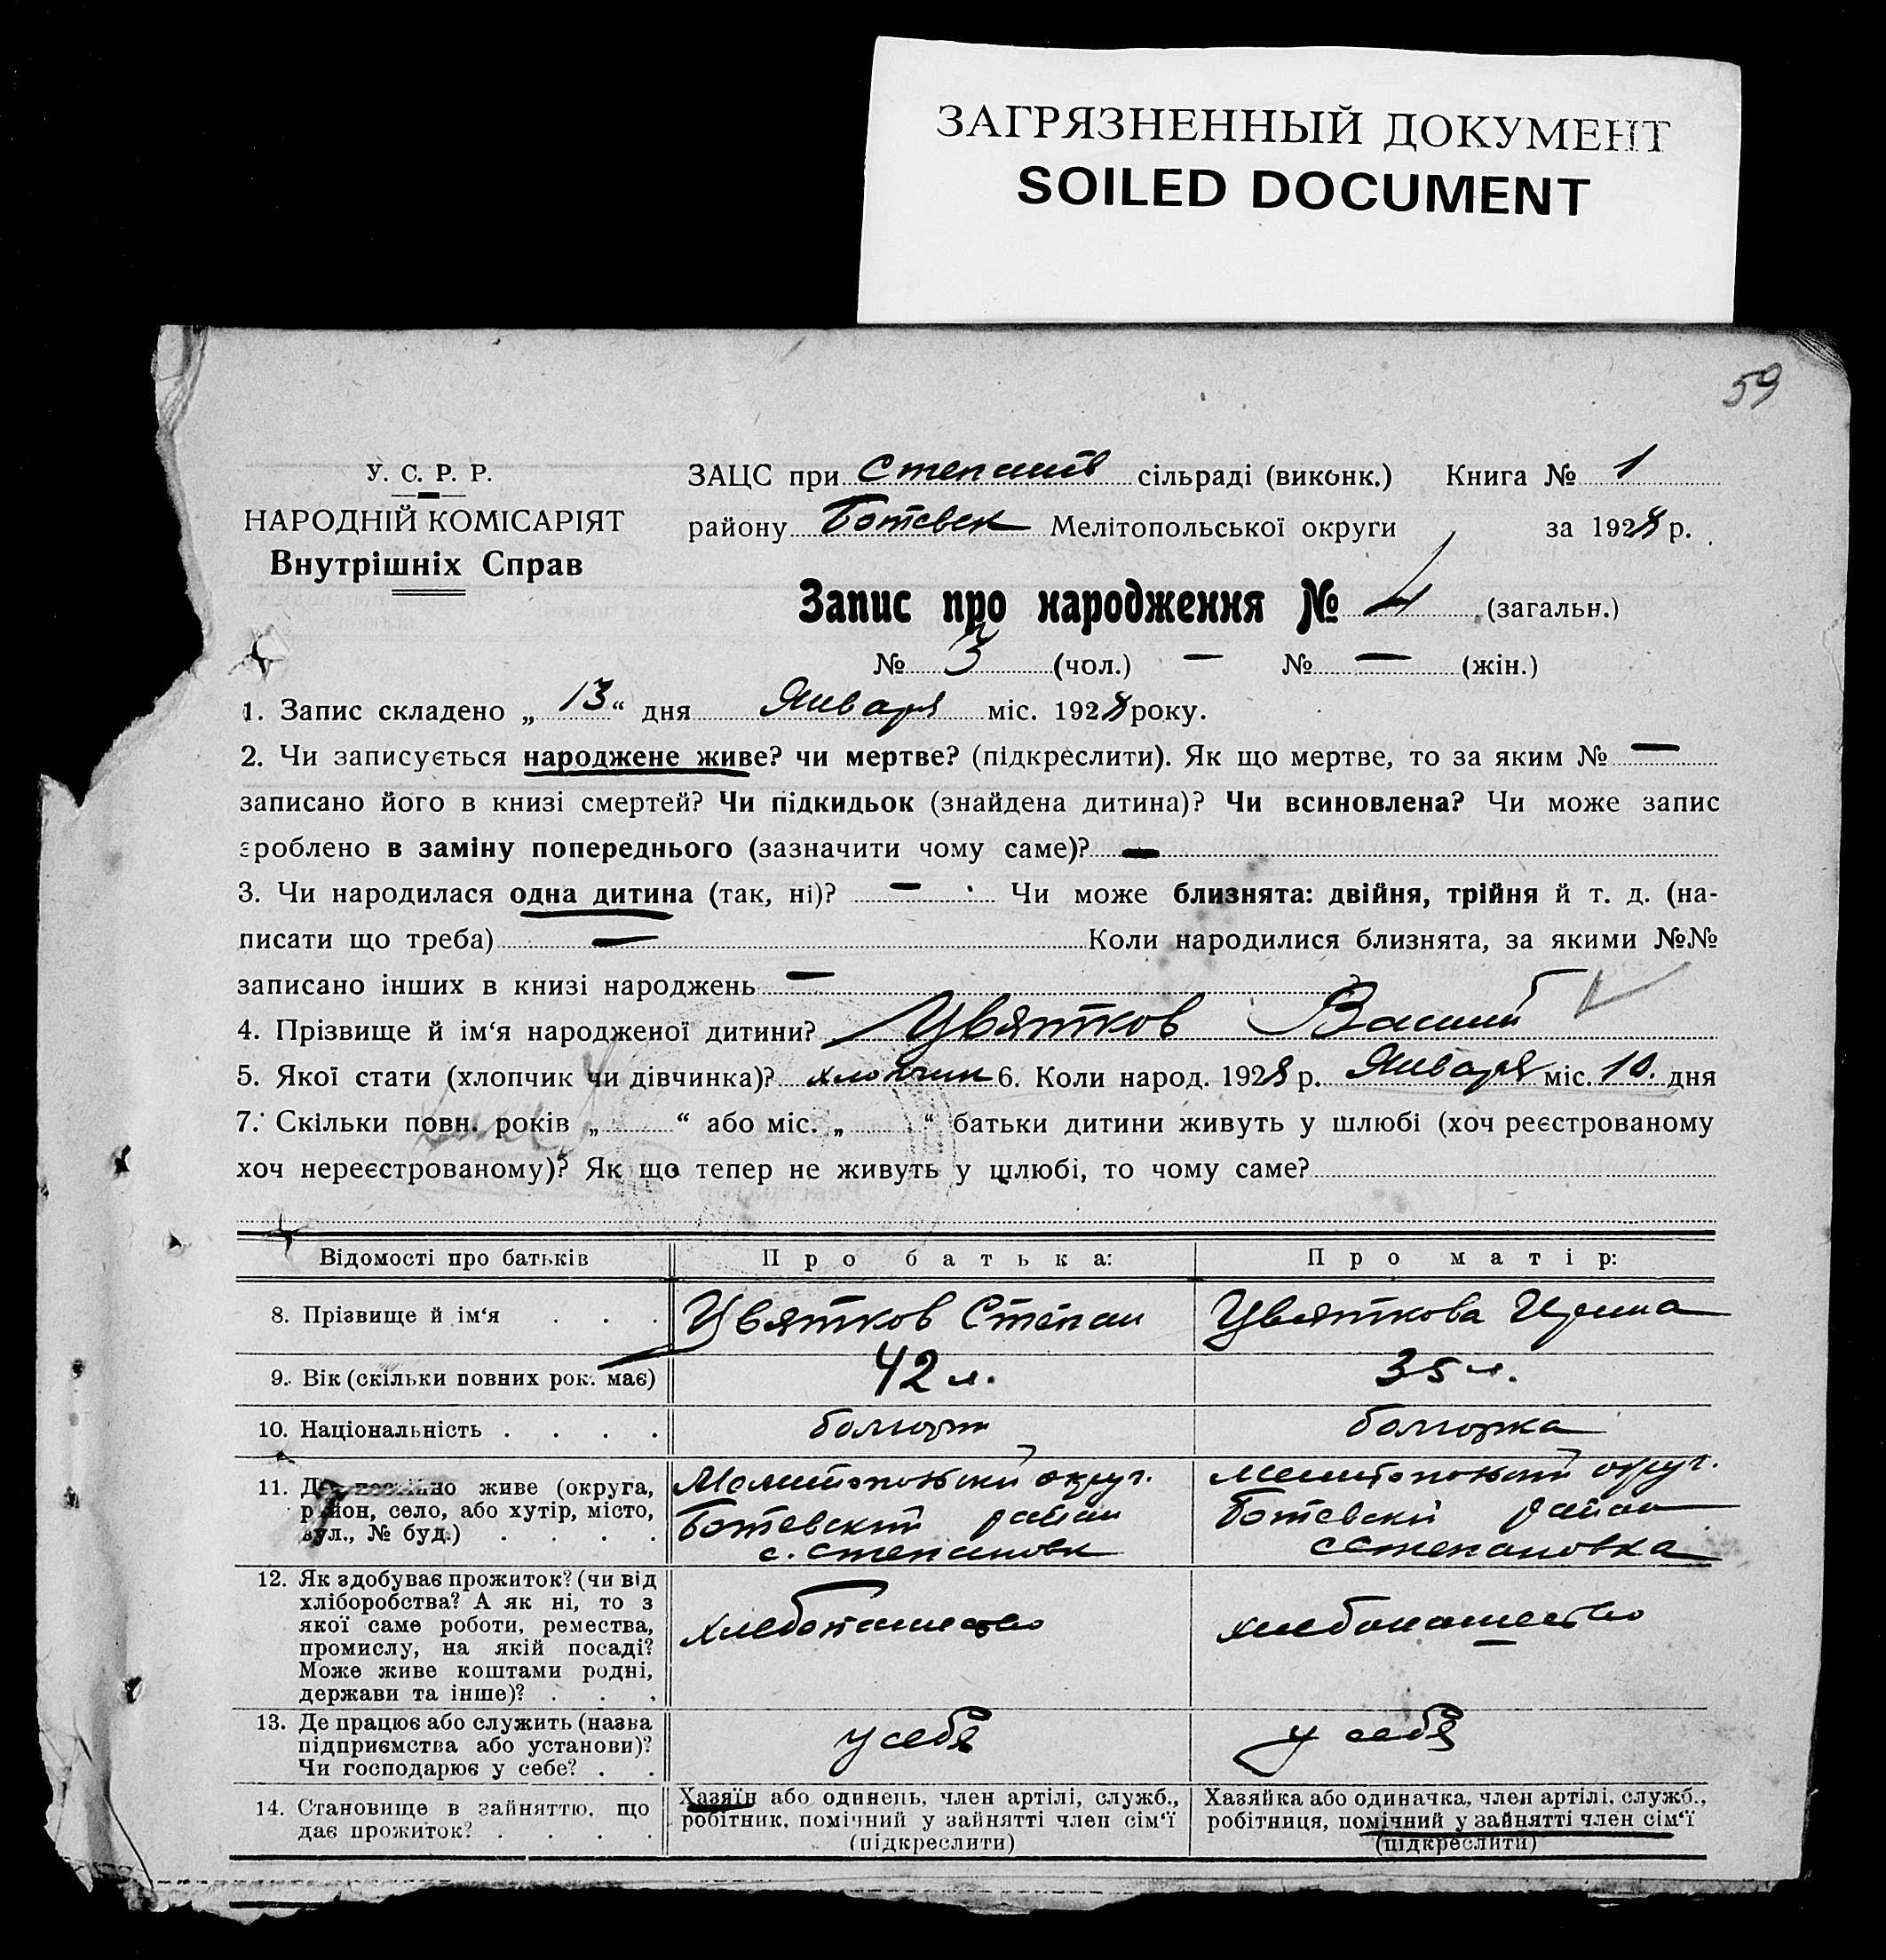 ЗАГРЯЗНЕННЫЙ ДОКУМЕНТ
SOILED DOCUMENT
59
У. С. Р. Р.
НАРОДНІЙ КОМІСАРІЯТ
Внутрішніх Справ
ЗАЦС при Степанів сільраді (виконк.) Книга № 1
району Ботевск Мелітопольської округи за 1928 р.
Запис про народження № 4 (загальн.)
№ 3 (чол.) — № — (жін.)
1. Запис складено „ 13 “ дня Января міс. 1928 року.
2. Чи записується народжене живе? чи мертве? (підкреслити). Як що мертве, то за яким № —
записано його в книзі смертей? Чи підкидьок (знайдена дитина)? Чи всиновлена? Чи може запис
зроблено в заміну попереднього (зазначити чому саме)? —
3. Чи народилася одна дитина (так, ні)? — Чи може близнята: двійня, трійня й т. д. (на-
писати що треба) — Коли народилися близнята, за якими №№
записано інших в книзі народжень —
4. Прізвище й ім‘я народженої дитини? Цвятков Василий
5. Якої стати (хлопчик чи дівчинка)? хлопчик 6. Коли народ. 1928 р. Января міс. 10. дня
7. Скільки повн. років „ “ або міс. „ “ батьки дитини живуть у шлюбі (хоч реєстрованому
хоч нереєстрованому)? Як що тепер не живуть у шлюбі, то чому саме?
Відомості про батьків Про батька: Про матір:
8. Прізвище й ім‘я . . . Цвятков Степан Цвяткова Ирина
9. Вік (скільки повних рок. має) 42 л. 35 л.
10. Національність . . . . болгарин болгарка
11. Де постійно живе (округа, Мелитопольский округ. Мелитопольский округ.
район, село, або хутір, місто, Ботевский район Ботевский район
вул., № буд.) . . . . с. Степановк с Степановка
12. Як здобуває прожиток? (чи від
хліборобства? А як ні, то з
якої саме роботи, ремества, хлебопашество хлебопашество
промислу, на якій посаді?
Може живе коштами родні,
держави та інше)? . . .
13. Де працює або служить (назва
підприємства або установи)? у себя у себя
Чи господарює у себе? . .
14. Становище в зайняттю, що
дає прожиток? . . . .
Хазяїн або одинець, член артілі, служб.,
робітник, помічний у зайнятті член сім‘ї
(підкреслити)
Хазяйка або одиначка, член артілі, служб.,
робітниця, помічний у зайнятті член сім‘ї
(підкреслити)